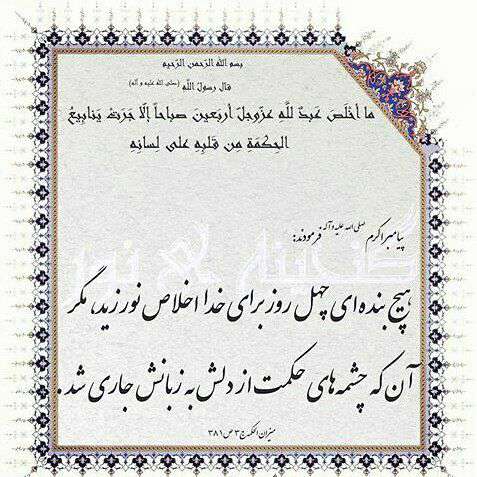 بسم الله الرحمن الرحیم
قال رسول الله (صلی الله علیه و آله)
ما أخلَصَ عَبدٌ للهِ عزّوجلّ أربَعینَ صباحاً إلّا جَرَتْ یَنابیعُ
الحِکمَةِ مِن قَلبِهِ علی لسانِهِ
پیامبر اکرم صلی الله علیه و آله فرمودند:
هیچ بنده ای چهل روز برای خدا اخلاص نورزید، مگر
آن که چشمه های حکمت از دلش به زبانش جاری شد.
میزان الحکمه ج ۳ ص ۳۸۱